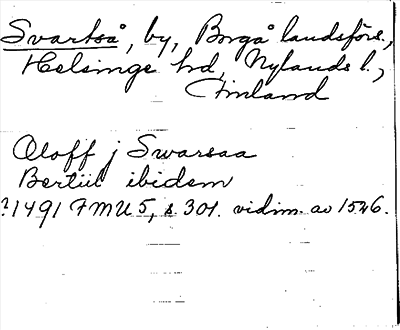 Svartså, by, Borgå landsförs.,
Helsinge hd, Nylands l.,
Finland
Oloff j Swarsaa
Bertil ibidem
?1491 FMU 5, s 301. vidim. av 1546.